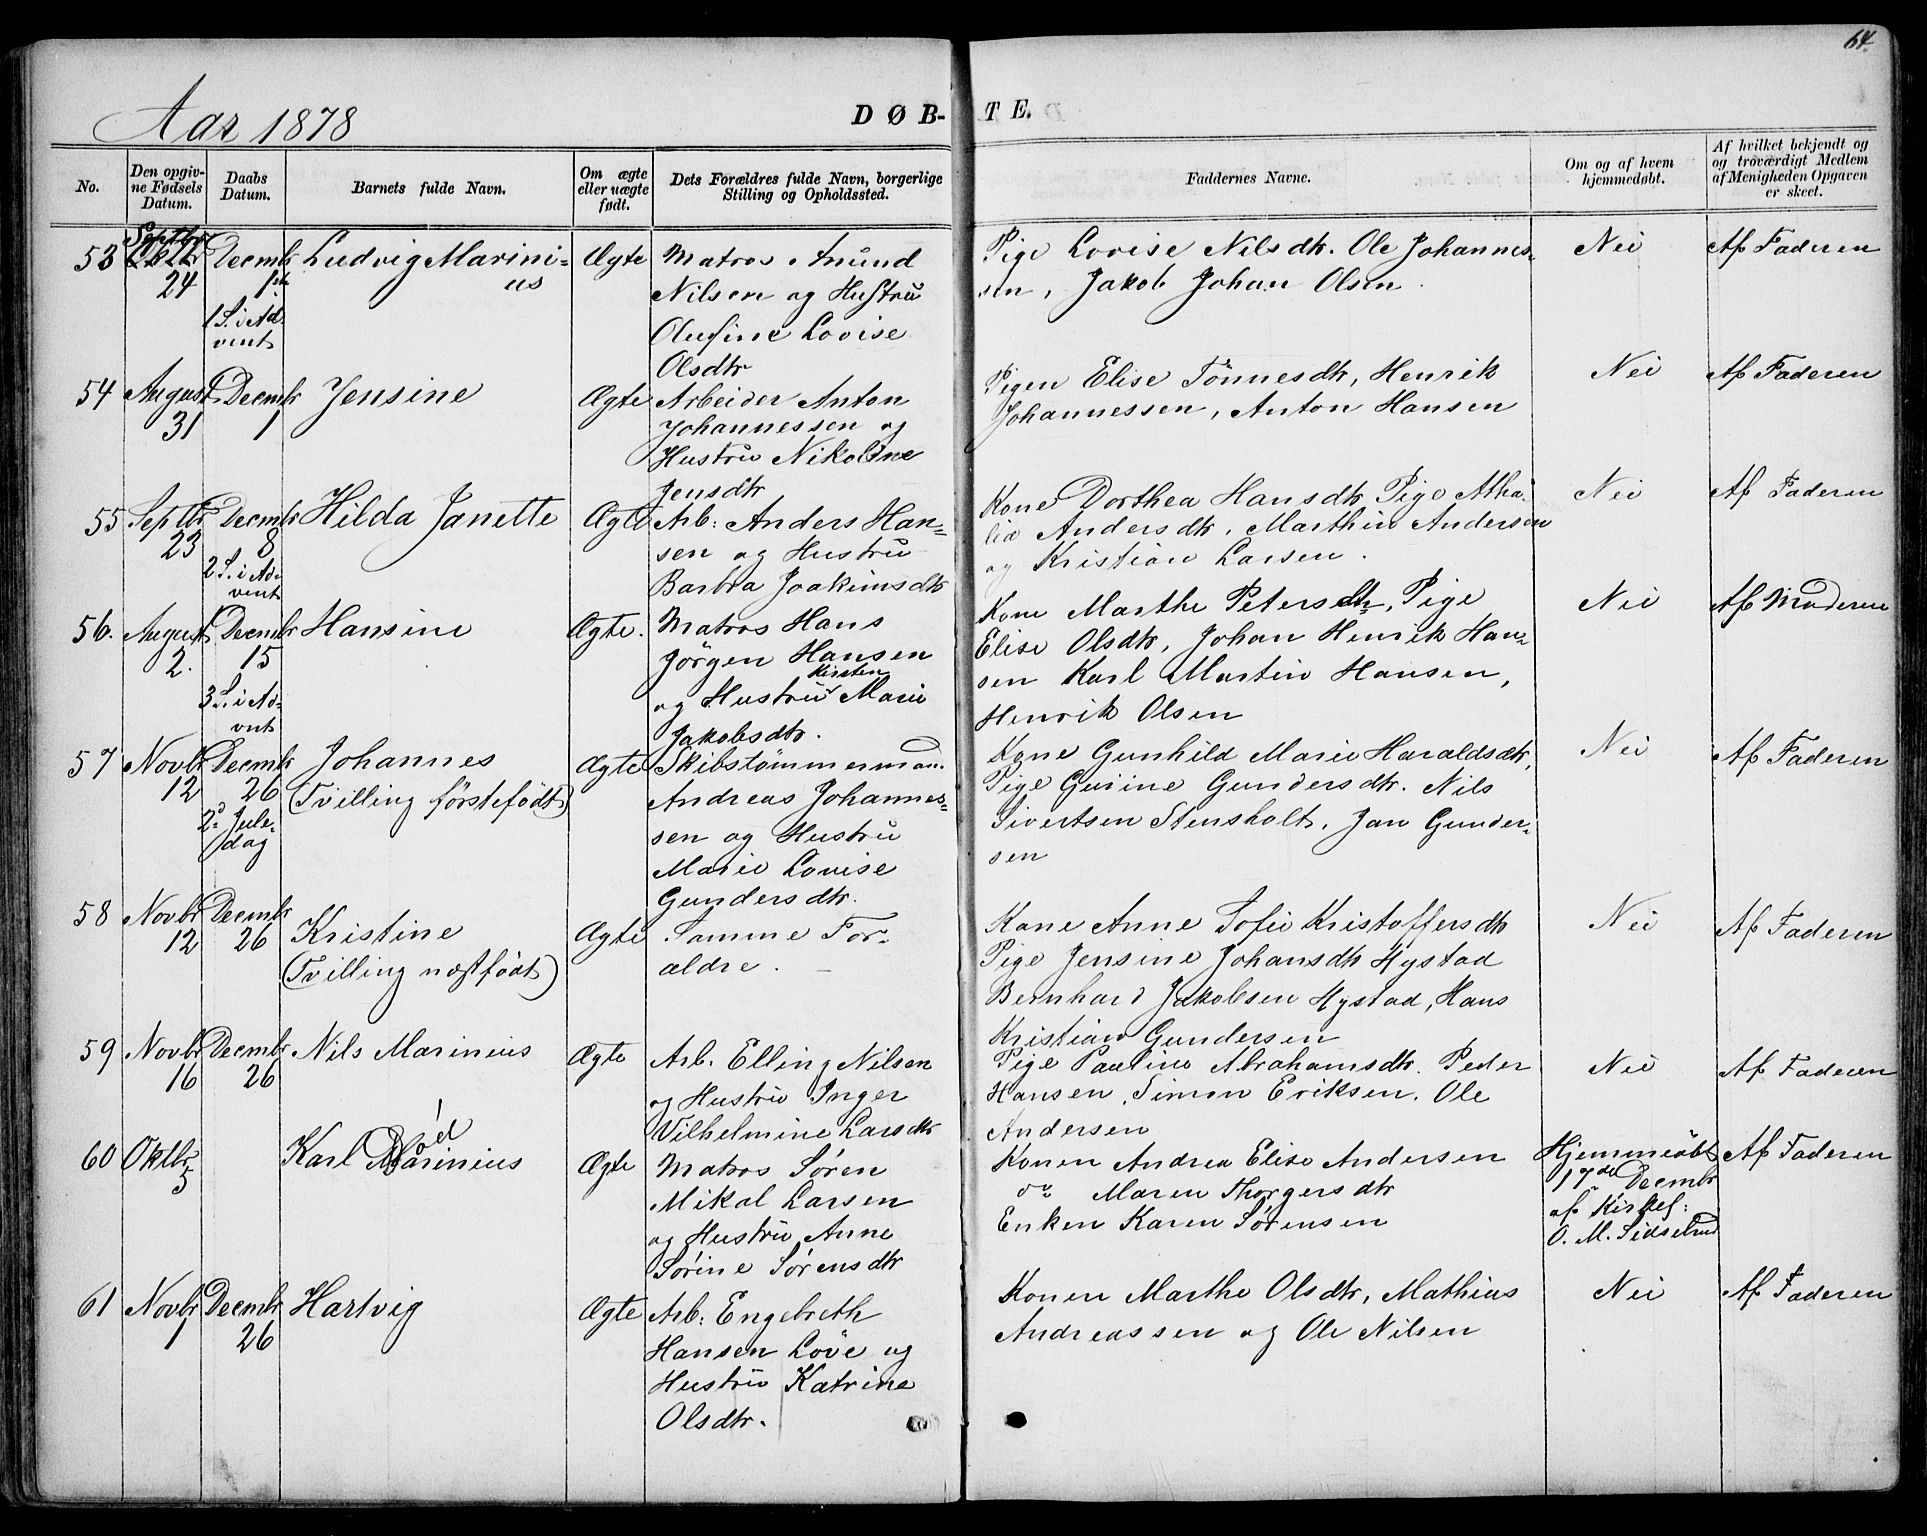 64.
Aar 1878
DØB-
TE.
No.
Den opgiv-
ne Fødsels
Datum.
Daabs
Datum.
Barnets fulde Navn.
Om ægte
eller uægte
født.
Dets Forældres fulde Navn, borgerlige
Stilling og Opholdssted.
Faddernes Navne.
Om og af hvem
hjemmedøbt.
Af hvilket bekjendt og
og troværdigt Medlem
af Menigheden Opgaven
er skeet.
53
Septbr
24
Decmbr
1ste
1 S. i Ad-
vent
Ludvig Marini-
us
Ægte
Matros Amund
Nilsen og Hustru
Olufine Lovise
Olsdtr
Pige Lovise Nilsdtr. Ole Johannes-
sen, Jakob Johan Olsen.
Nei
Af Faderen
54
August
31
Decmbr
1
Jensine
Ægte
Arbeider Anton
Johannessen og
Hustru Nikoline
Jensdtr
Pigen Elise Tönnesdtr, Henrik
Johannessen, Anton Hansen
Nei
Af Faderen
55
Septbr
23
Decmbr
8
2 S. i Ad-
vent
Hilda Janette
Ægte
Arb: Anders Han-
sen og Hustru
Barbra Joakimsdtr
Kone Dorthea Hansdtr, Pige Atha-
lia Andersdtr, Marthin Andersen
og Kristian Larsen.
Nei
Af Faderen
56.
August
2.
Decmbr
15
3 S. i Ad-
vent
Hansine
Ægte.
Matros Hans
Jörgen Hansen
Kirsten
og Hustru Marie
Jakobsdtr.
Kone Marthe Petersdtr, Pige
Elise Olsdtr, Johan Henrik Han-
sen Karl Martin Hansen,
Henrik Olsen
Nei
Af Moderen
57
Novbr
12
Decmbr
26
2d Jule-
dag
Johannes
(Tvilling förstefödt)
Ægte
Skibstömmermand.
Andreas Johannes-
sen og Hustru
Marie Lovise
Gundersdtr.
Kone Gunhild Marie Haraldsdtr,
Pige Gurine Gundersdtr. Nils
Sivertsen Stensholt, Jan Gunder-
sen
Nei
Af Faderen
58
Novbr
12
Decmbr
26
Kristine
(Tvilling næstfödt)
Ægte
Samme For-
ældre.
Kone Anne Sofie Kristoffersdtr
Pige Jensine Johansdtr Hystad
Bernhard Jakobsen Hystad, Hans
Kristian Gundersen
Nei
Af Faderen
59
Novbr
16
Decmbr
26
Nils Marinius
Ægte
Arb. Elling Nilsen
og Hustru Inger
Vilhelmine Larsdtr
Pige Pauline Abrahamsdtr. Peder
Hansen, Simon Eriksen. Ole
Andersen
Nei
Af Faderen
60
Oktbr
5
Död
Karl Marinius
Ægte
Matros Sören
Mikal Larsen
og Hustru Anne
Sörine Sörensdtr
Konen Andrea Elise Andersen
do Maren Thorgersdtr
Enken Karen Sörensen
Hjemmedöbt
17de Decmbr
af Kirkes:
O. M. Sidselrud
Af Faderen
61
Novbr
1
Decmbr
26
Hartvig
Ægte
Arb: Engebreth
Hansen Löve og
Hustru Katrine
Olsdtr.
Konen Marthe Olsdtr, Mathius
Andreassen og Ole Nilsen
Nei
Af Faderen